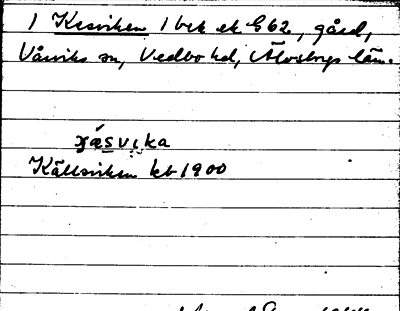 1 Kesviken 1 bek ek E62, gård,
Vårviks sn, Vedbo hd, Älvsborgs län.
xásvika
Källsviken kb 1900